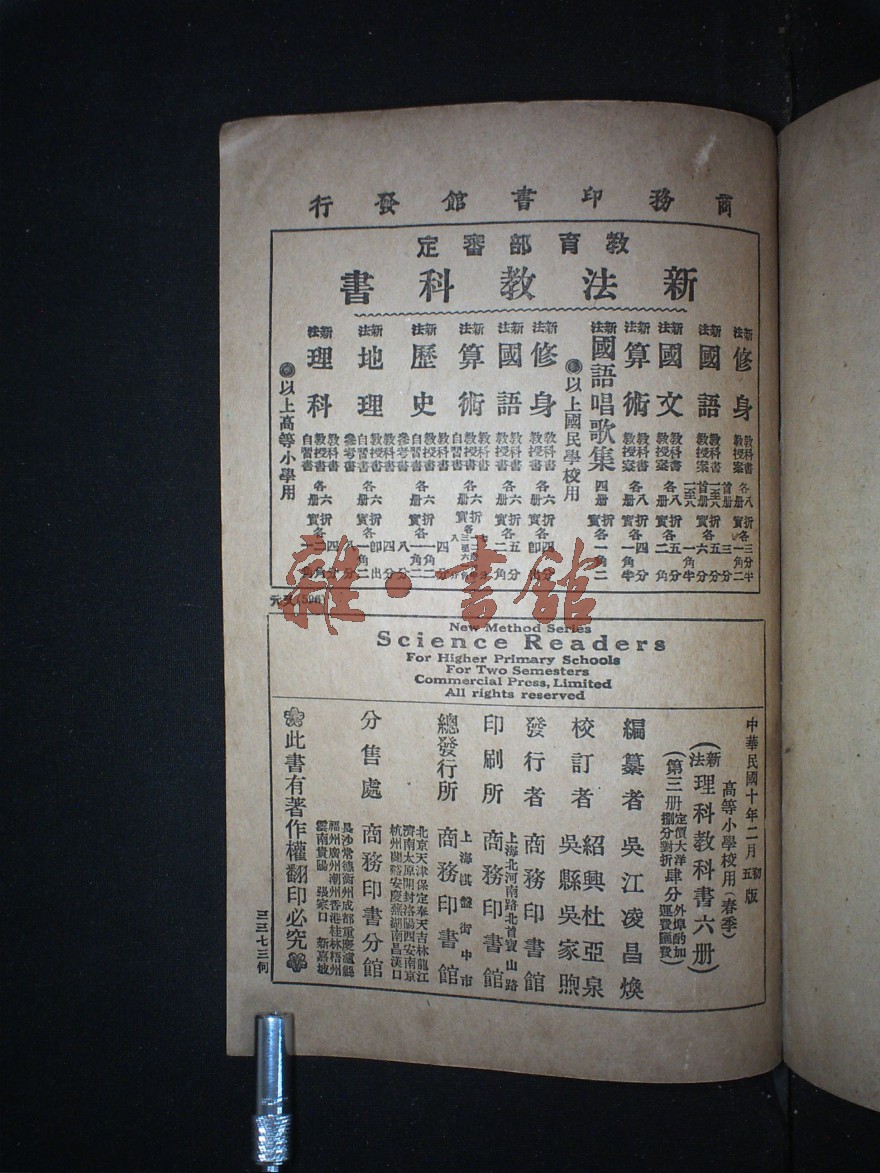 商務印書館發行
教育部審定
新法教科書
新法修身 教科書 教授案 各八册
新法國語 教科書 教授案 首册
新法國文 教科書 教授案 各八册
新法算術 教授案 各八册
新法國語唱歌集 四册
以上國民學校用
新法修身 教科書 教授書 各六册
新法國語 教科書 教授書 各六册
新法算術 教科書 教授書 自習書
新法歷史 教科書 教授書 參考書 自習書 各六册
新法地理 教科書 教授書 自習書 參考書 各六册
新法理科 教科書 教授書 自習書 各六册
以上高等小學用
New Method Series
Science Readers
For Higher Primary Schools
For Two Semesters
Commercial Press, Limited
All rights reserved
中華民國十年二月初五版
高等小學校用(春季)
(新法理科教科書六册)
(第三册定價大洋捌分對折肆分 外埠酌加運費匯費)
編纂者 吳江凌昌煥
校訂者 紹興杜亞泉 吳縣吳家煦
發行者 商務印書館
上海北河南路北首寶山路
印刷所 商務印書館
上海棋盤街中市
總發行所 商務印書館
北京天津保定奉天吉林龍江
濟南太原開封洛陽西安南京
杭州蘭谿安慶蕪湖南昌漢口
分售處 商務印書分館
長沙常德衡州成都重慶瀘縣
福州廣州潮州香港桂林梧州
雲南貴陽 張家口 新嘉坡
此書有著作權翻印必究
三三七三何
雜·書館